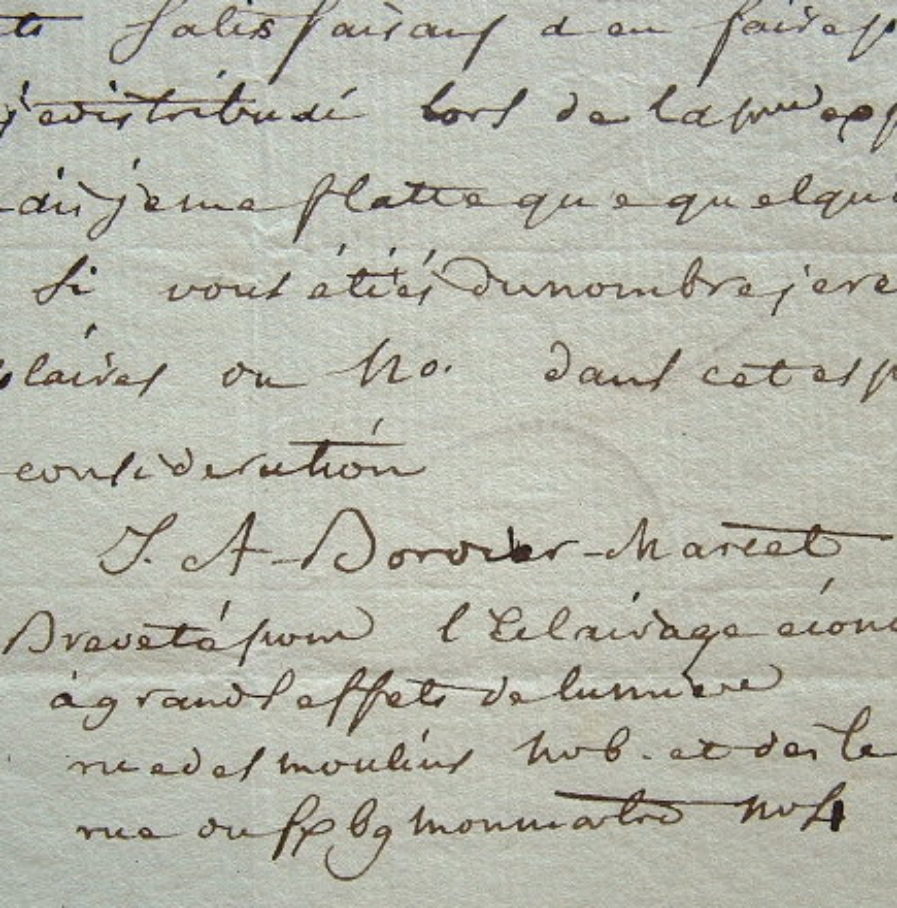 ts satisfaisans d en faire p
je distribuai lors de la pre exp
ais je me flatte que quelqu
Si vous étiés du nombre je re
plaires ou No. dans cet esp
consideration
J. A - Bordier - Marcet
Breveté pour l'Eclairage écono
à grands effets de lumiere
rue des moulins No 6. et dès le
rue du fg montmartre No 4